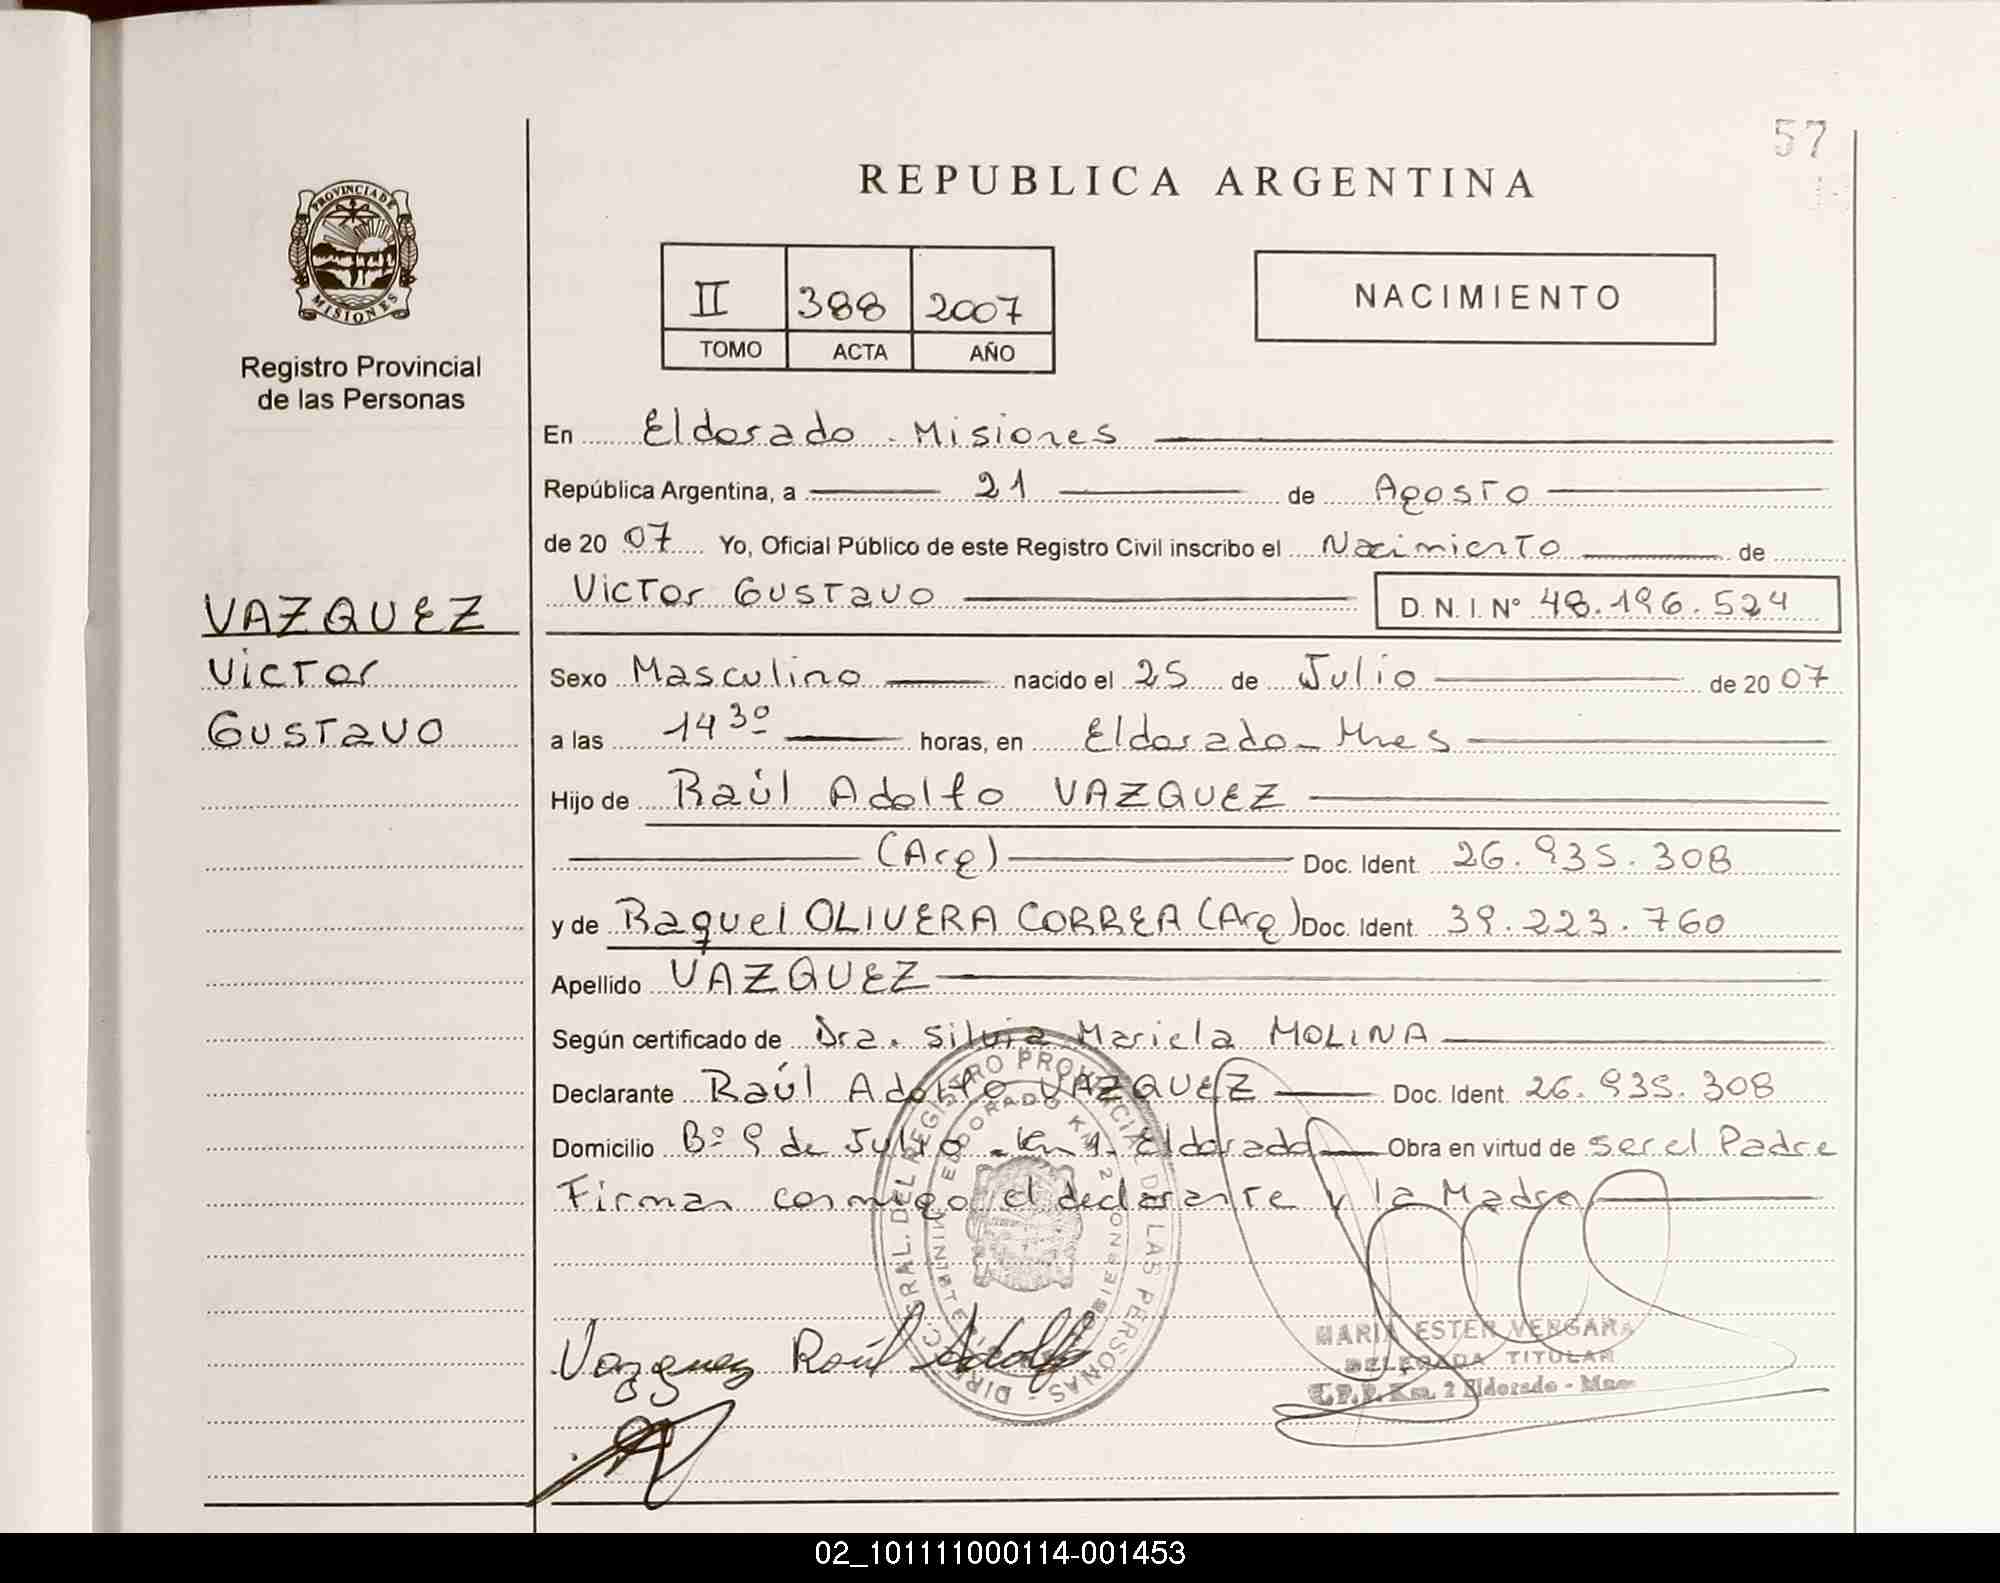 57
REPUBLICA ARGENTINA
PROVINCIA DE
MISIONES
Registro Provincial
de las Personas
II 388 2007
TOMO ACTA AÑO
NACIMIENTO
En Eldorado - Misiones
República Argentina, a 21 de Agosto
de 20 07 Yo, Oficial Público de este Registro Civil inscribo el Nacimiento de
Victor Gustavo D.N.I. Nº 48.196.524
VAZQUEZ
Victor
Gustavo
Sexo Masculino nacido el 25 de Julio de 20 07
a las 14 30 horas, en Eldorado - Mnes
Hijo de Raúl Adolfo VAZQUEZ
(Arg) Doc. Ident. 26.935.308
y de Raquel OLIVERA CORREA (Arg) Doc. Ident. 39.223.760
Apellido VAZQUEZ
Según certificado de Dra. Silvia Mariela MOLINA
Declarante Raúl Adolfo VAZQUEZ Doc. Ident. 26.935.308
Domicilio Bº 9 de Julio - Km 1. Eldorado Obra en virtud de ser el Padre
Firman conmigo el declarante y la Madre
DIREC. GRAL. DEL REGISTRO PROVINCIAL DE LAS PERSONAS
ELDORADO KM. 2 MISIONES
Vazquez Raúl Adolfo
MARIA ESTER VERGARA
DELEGADA TITULAR
R.P.P. Km. 2 Eldorado - Mnes
02_101111000114-001453